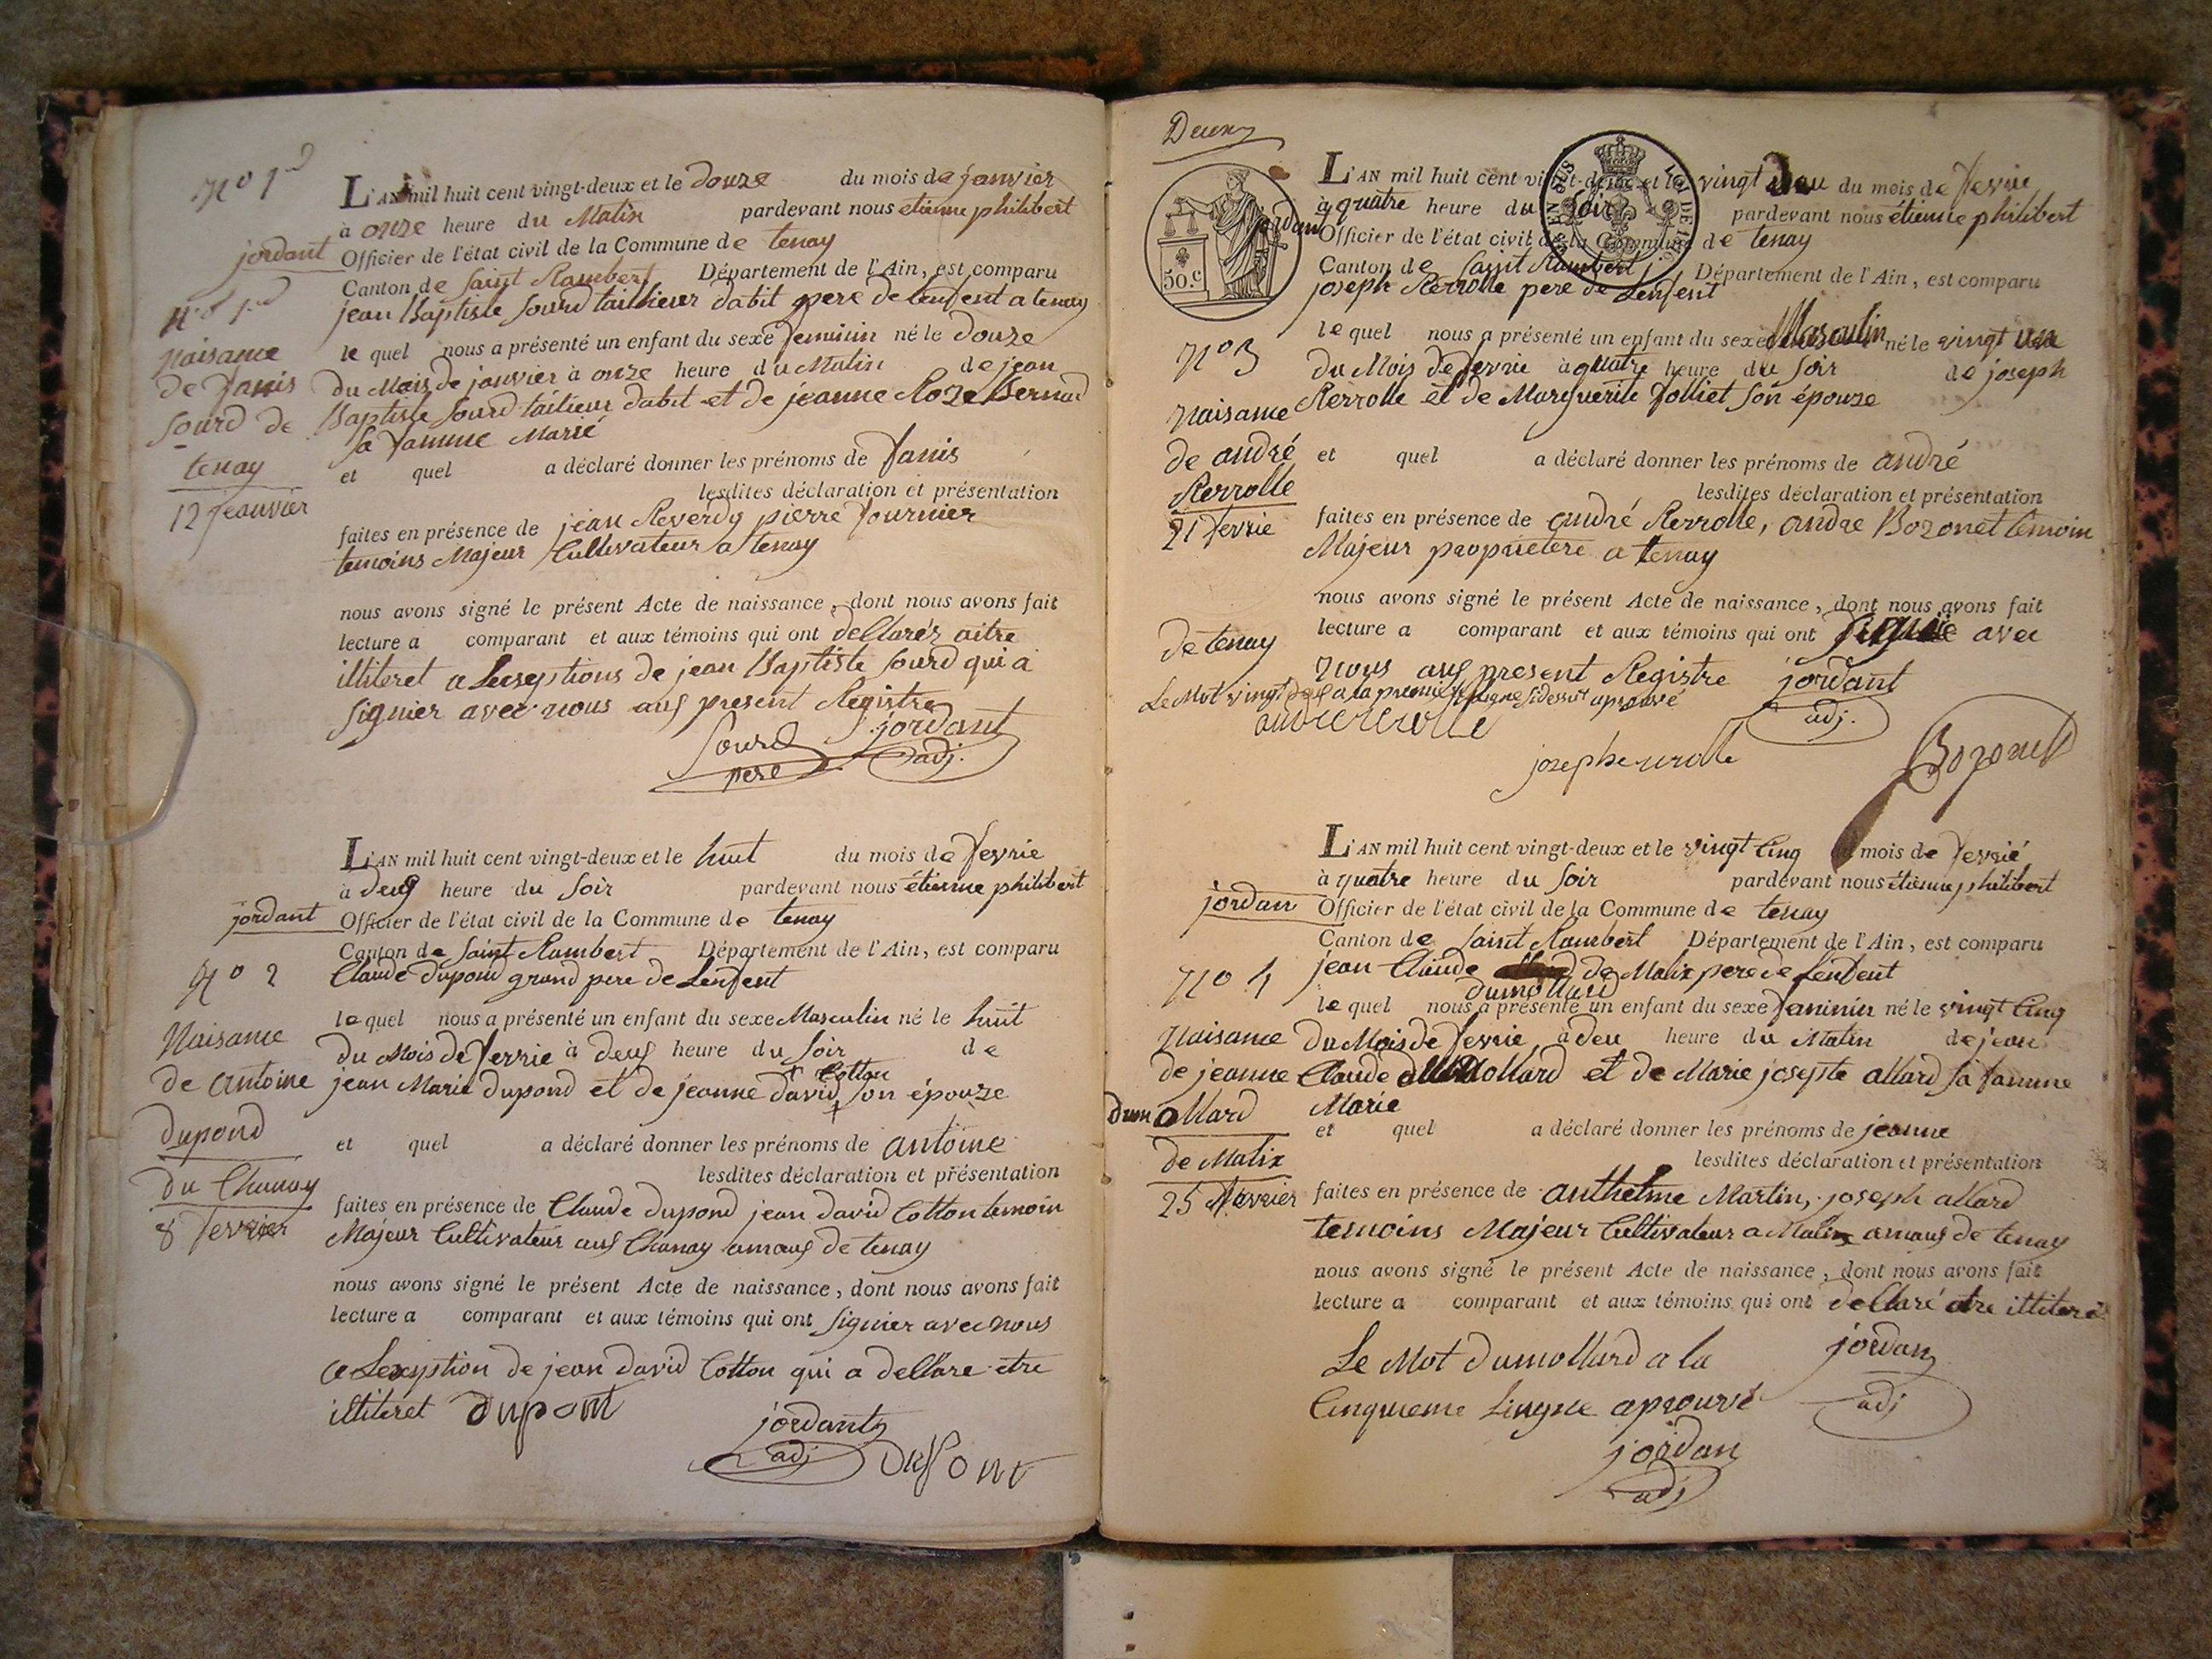 N° 1er
L'AN mil huit cent vingt-deux et le douze du mois de janvier
à onze heure du Matin pardevant nous etienne philibert
jordant Officier de l'état civil de la Commune de tenay
Canton de Saint Rambert Département de l'Ain, est comparu
jean Baptiste Sourd taillieur dabit pere de lenfent a tenay
N° 1er
le quel nous a présenté un enfant du sexe feminin né le douze
du Mois de janvier à onze heure du Matin de jean
Baptiste Sourd tailieur dabit et de jeanne Roze Bernad
Sa famme Marié
et quel a déclaré donner les prénoms de fanis
lesdites déclaration et présentation
faites en présence de jean Reverdy pierre fournier
temoins Majeur Cultivateur a tenay
Naisance
de fanis
Sourd de
tenay
12 jeanvier
nous avons signé le présent Acte de naissance, dont nous avons fait
lecture a comparant et aux témoins qui ont dellarés aitre
illiteret a Lecseptions de jean Baptiste Sourd qui a
Signier avec nous aus present Registre
Sourd jordant
pere adj.
L'AN mil huit cent vingt-deux et le huit du mois de fevrie
à deus heure du Soir pardevant nous étienne philibert
jordant Officier de l'état civil de la Commune de tenay
Canton de Saint Rambert Département de l'Ain, est comparu
N° 2 Claude dupond grand pere de Lenfent
le quel nous a présenté un enfant du sexe Masculin né le huit
du Mois de fevrie à deus heure du Soir de
Cotton
jean Marie dupond et de jeanne david Son épouze
et quel a déclaré donner les prénoms de antoine
lesdites déclaration et présentation
faites en présence de Claude dupond jean david Cotton temoin
Majeur Cultivateur aus Chanay amaus de tenay
Naisance
de antoine
dupond
du Chanay
8 fevrier
nous avons signé le présent Acte de naissance, dont nous avons fait
lecture a comparant et aux témoins qui ont Signier avec nous
a Lexeption de jean david Cotton qui a dellare etre
illiteret dupont
jordant
adj dupont
Deux
50.c
L'AN mil huit cent vingt-deux et le vingt deu du mois de fevrie
à quatre heure du Soir pardevant nous étienne philibert
jordan Officier de l'état civil de la Commune de tenay
Canton de Saint Rambert Département de l'Ain, est comparu
joseph Rerrolle pere de Lenfent
le quel nous a présenté un enfant du sexe Masculin né le vingt une
N° 3 du Mois de fevrie à quatre heure du Soir de joseph
Rerrolle et de Marguerite folliet Son épouze
et quel a déclaré donner les prénoms de andré
lesdites déclaration et présentation
faites en présence de andré Rerrolle, andre Bozonet témoin
Majeur proprietere a tenay
Naisance
de andré
Rerrolle
21 fevrie
de tenay
nous avons signé le présent Acte de naissance, dont nous avons fait
lecture a comparant et aux témoins qui ont Signié avec
nous aus present Registre jordant
adj.
Le Mot vingt deus a la premiere Lingne Sidessus aprouvé
andre rerolle
joseph rerolle Bozonet
L'AN mil huit cent vingt-deux et le vingt Cinq mois de fevrié
à quatre heure du Soir pardevant nous étienne philibert
jordan Officier de l'état civil de la Commune de tenay
Canton de Saint Rambert Département de l'Ain, est comparu
N° 4 jean Claude de Malix pere de Lenfent
dumollard
le quel nous a présenté un enfant du sexe feminin né le vingt Cinq
du Mois de fevrie à deu heure du Matin de jean
Claude dumollard et de Marie josepte allard Sa famme
Marie
et quel a déclaré donner les prénoms de jeanne
lesdites déclaration et présentation
faites en présence de anthelme Martin, joseph allard
temoins Majeur Cultivateur a Malix amaus de tenay
Naisance
de jeanne
dumollard
de Malix
25 fevrier
nous avons signé le présent Acte de naissance, dont nous avons fait
lecture a comparant et aux témoins qui ont dellaré etre illiteré
Le Mot dumollard a la jordan
Cinquieme Lingne aprouvé adj
jordan
adj